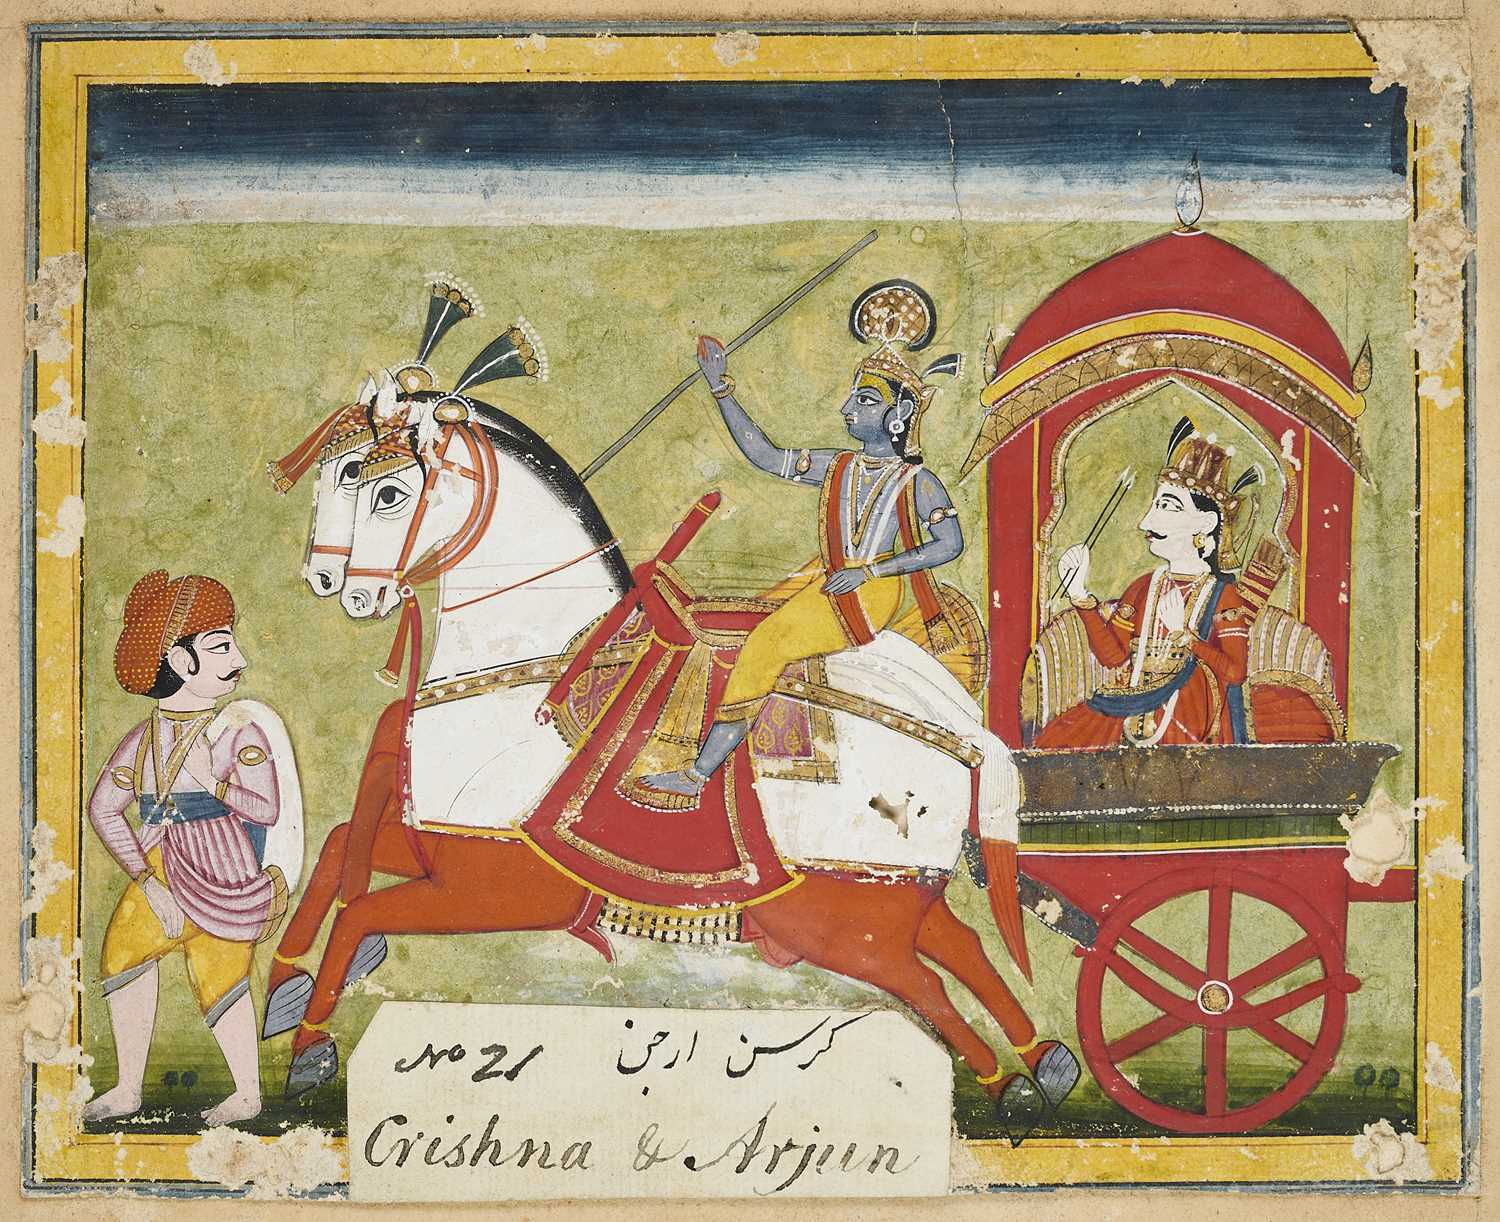 No 21 کرسن ارجن
Crishna & Arjun